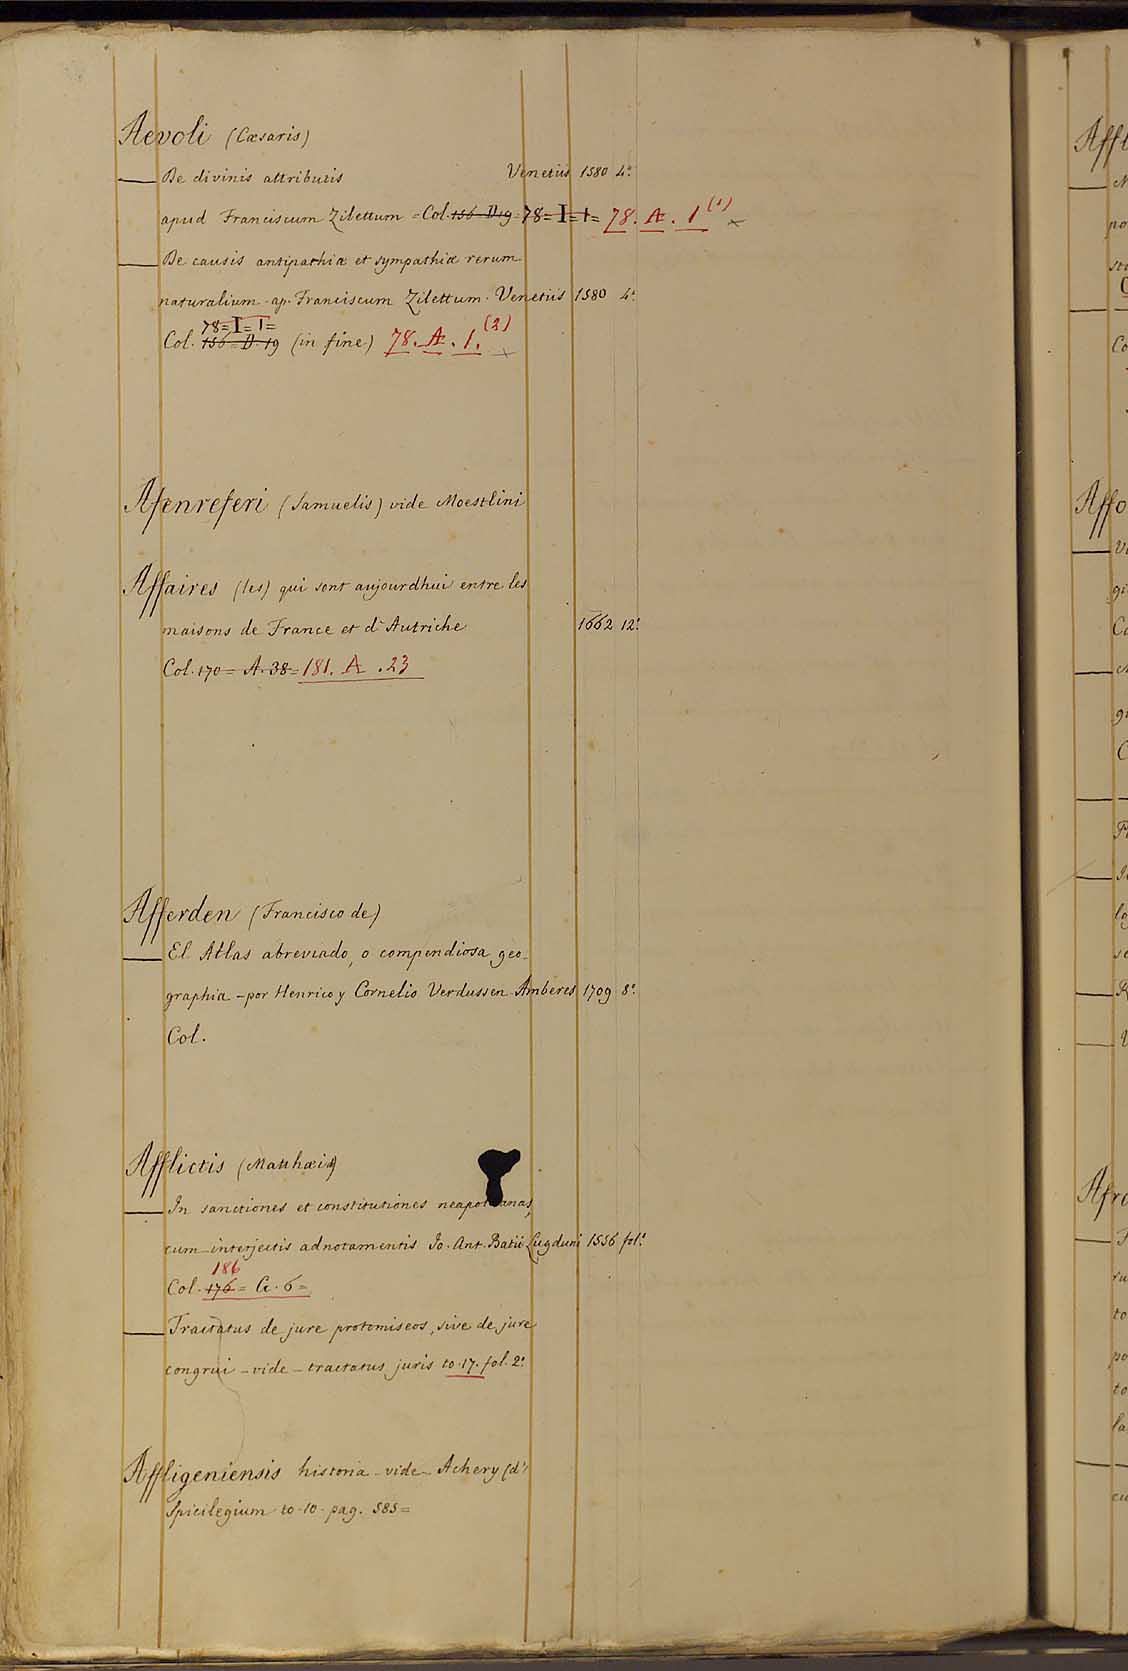 Aevoli (Cæsaris)
De divinis attributis Venetiis 1580 4º
apud Franciscum Zilettum = Col. 156-D.19 = 78=I=1= 78. A. 1 (1)
De causis antipathiæ et sympathiæ rerum
naturalium - ap. Franciscum Zilettum. Venetiis 1580 4º
78=I=1=
Col. 156=D.19 (in fine) 78. A. 1. (2)
Afenreferi (Samuelis) vide Moestlini
Affaires (les) qui sont aujourdhui entre les
maisons de France et d'Autriche 1662 12º
Col. 170= A. 38= 181. A. 23
Afferden (Francisco de)
El Atlas abreviado, o compendiosa geo-
graphia - por Henrico y Cornelio Verdussen Amberes 1709 8º
Col.
Afflictis (Matthæi)
In sanctiones et constitutiones neapol anas,
cum interjectis adnotamentis Jo. Ant. Batii Lugduni 1556 folº
186
Col. 176= G. 6=
Tractatus de jure protomiseos, sive de jure
congrui - vide - tractatus juris to. 17. fol. 2º
Affligeniensis historia - vide - Achery (d')
Spicilegium to. 10. pag. 585=